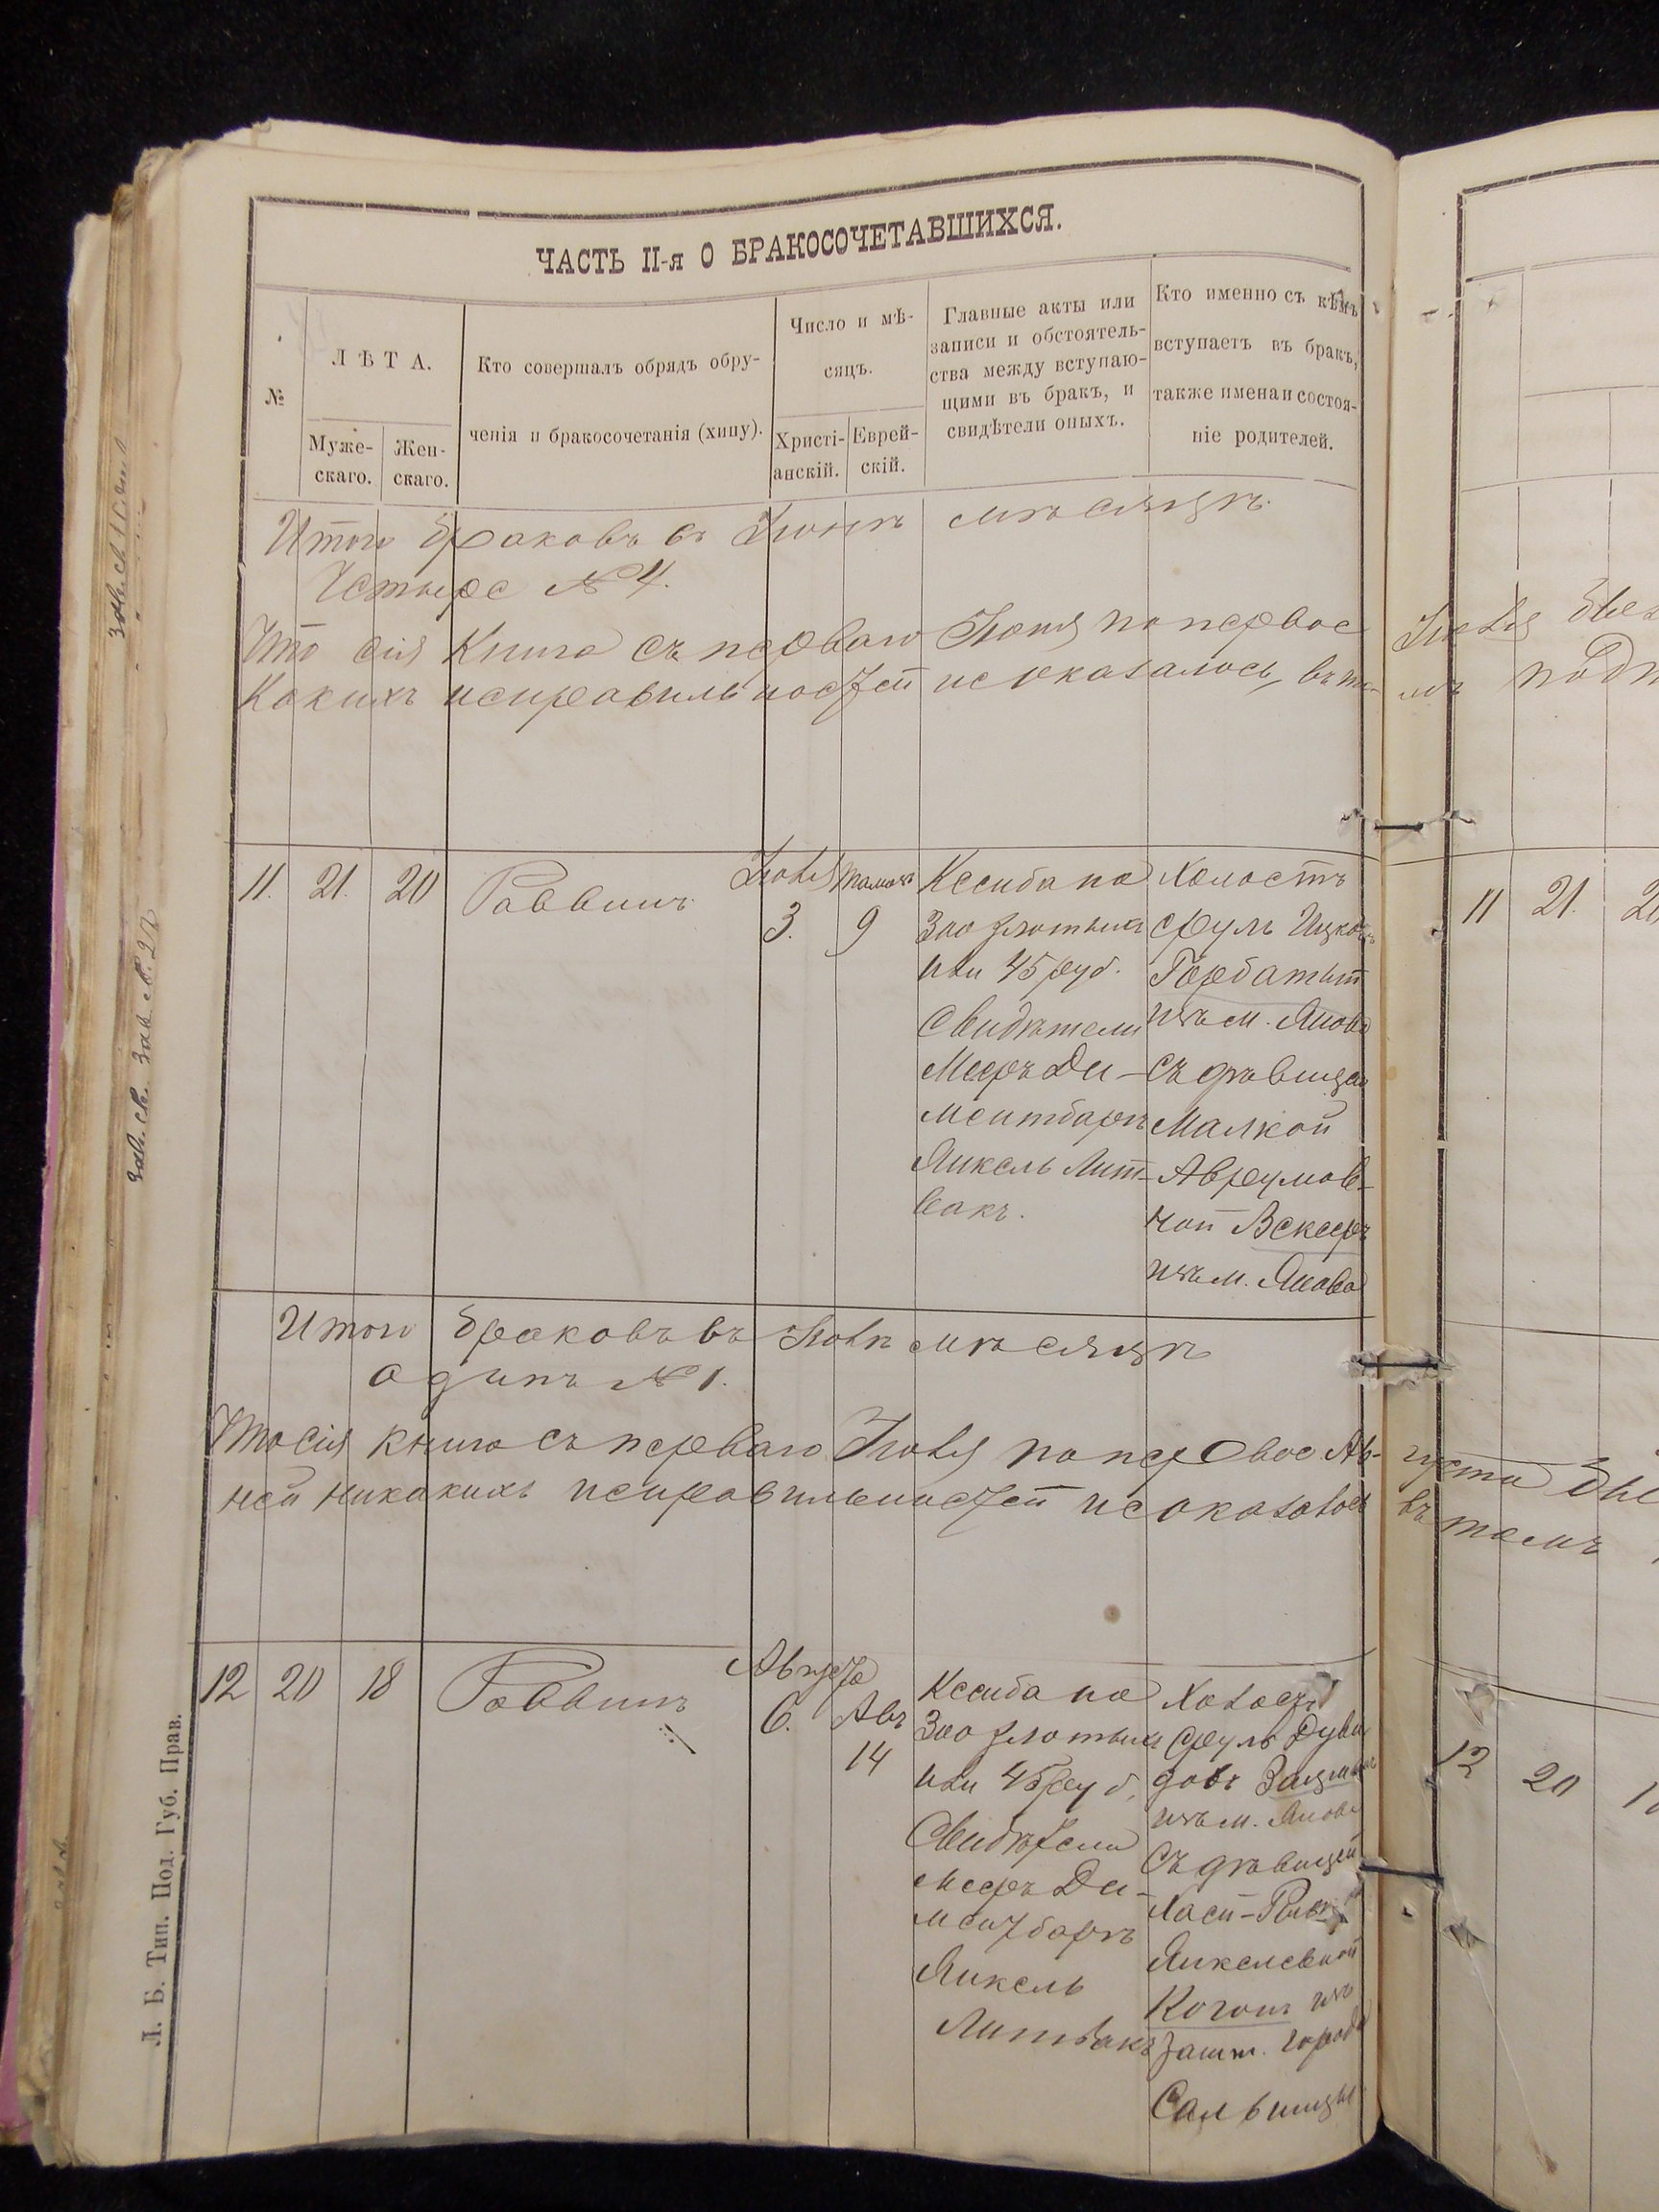 ЧАСТЬ II-я О БРАКОСОЧЕТАВШИХСЯ.
№
ЛѢТА.
Муже-
скаго.
Жен-
скаго.
Кто совершалъ обрядъ обру-
ченія и бракосочетанія (хипу).
Число и мѣ-
сяцъ.
Христі-
анскій.
Еврей-
скій.
Главные акты или
записи и обстоятель-
ства между вступаю-
щими въ бракъ, и
свидѣтели оныхъ.
Кто именно съ кѣмъ
вступаетъ въ бракъ,
также имена и состоя-
ніе родителей.
Итого браковъ въ Іюнѣ мѣсяцѣ
Четыре № 4.
Что сія Книга съ перваго Іюня по первое
Какихъ неправильностей не оказалось, въ
11. 21. 20 Раввинъ
Іюля
3.
Тамузъ
9
Кссиба на
300 злотыхъ
или 45 руб.
Свидѣтели
Мееръ Ди-
ментбаръ
Янкель Лит-
вакъ.
Холостъ
Сруль Ицковъ
Горбатый
изъ м. Янова
съ дѣвицей
Малкой
Аврумов-
ной Векееръ
изъ м. Янова
Итого браковъ въ Іюлѣ мѣсяцѣ
одинъ № 1.
Что сія книга съ перваго Іюля по первое Ав-
ней никакихъ неправильностей не оказалось
12 20 18 Раввинъ
Августа
6.
Авъ
14
Кссиба на
300 злотыхъ
или 45 руб.
Свидѣтели
Мееръ Ди-
ментбаръ
Янкель
Литвакъ
Холостъ
Сруль Дуви
довъ
изъ м. Янова
съ дѣвицей
Хаси-Ривк
Янкелевной
Коганъ изъ
зашт. города
Сальницы
Іюля
подп
11 21.
густа
въ томъ
12 20
Л. Б. Тип. Под. Губ. Прав.